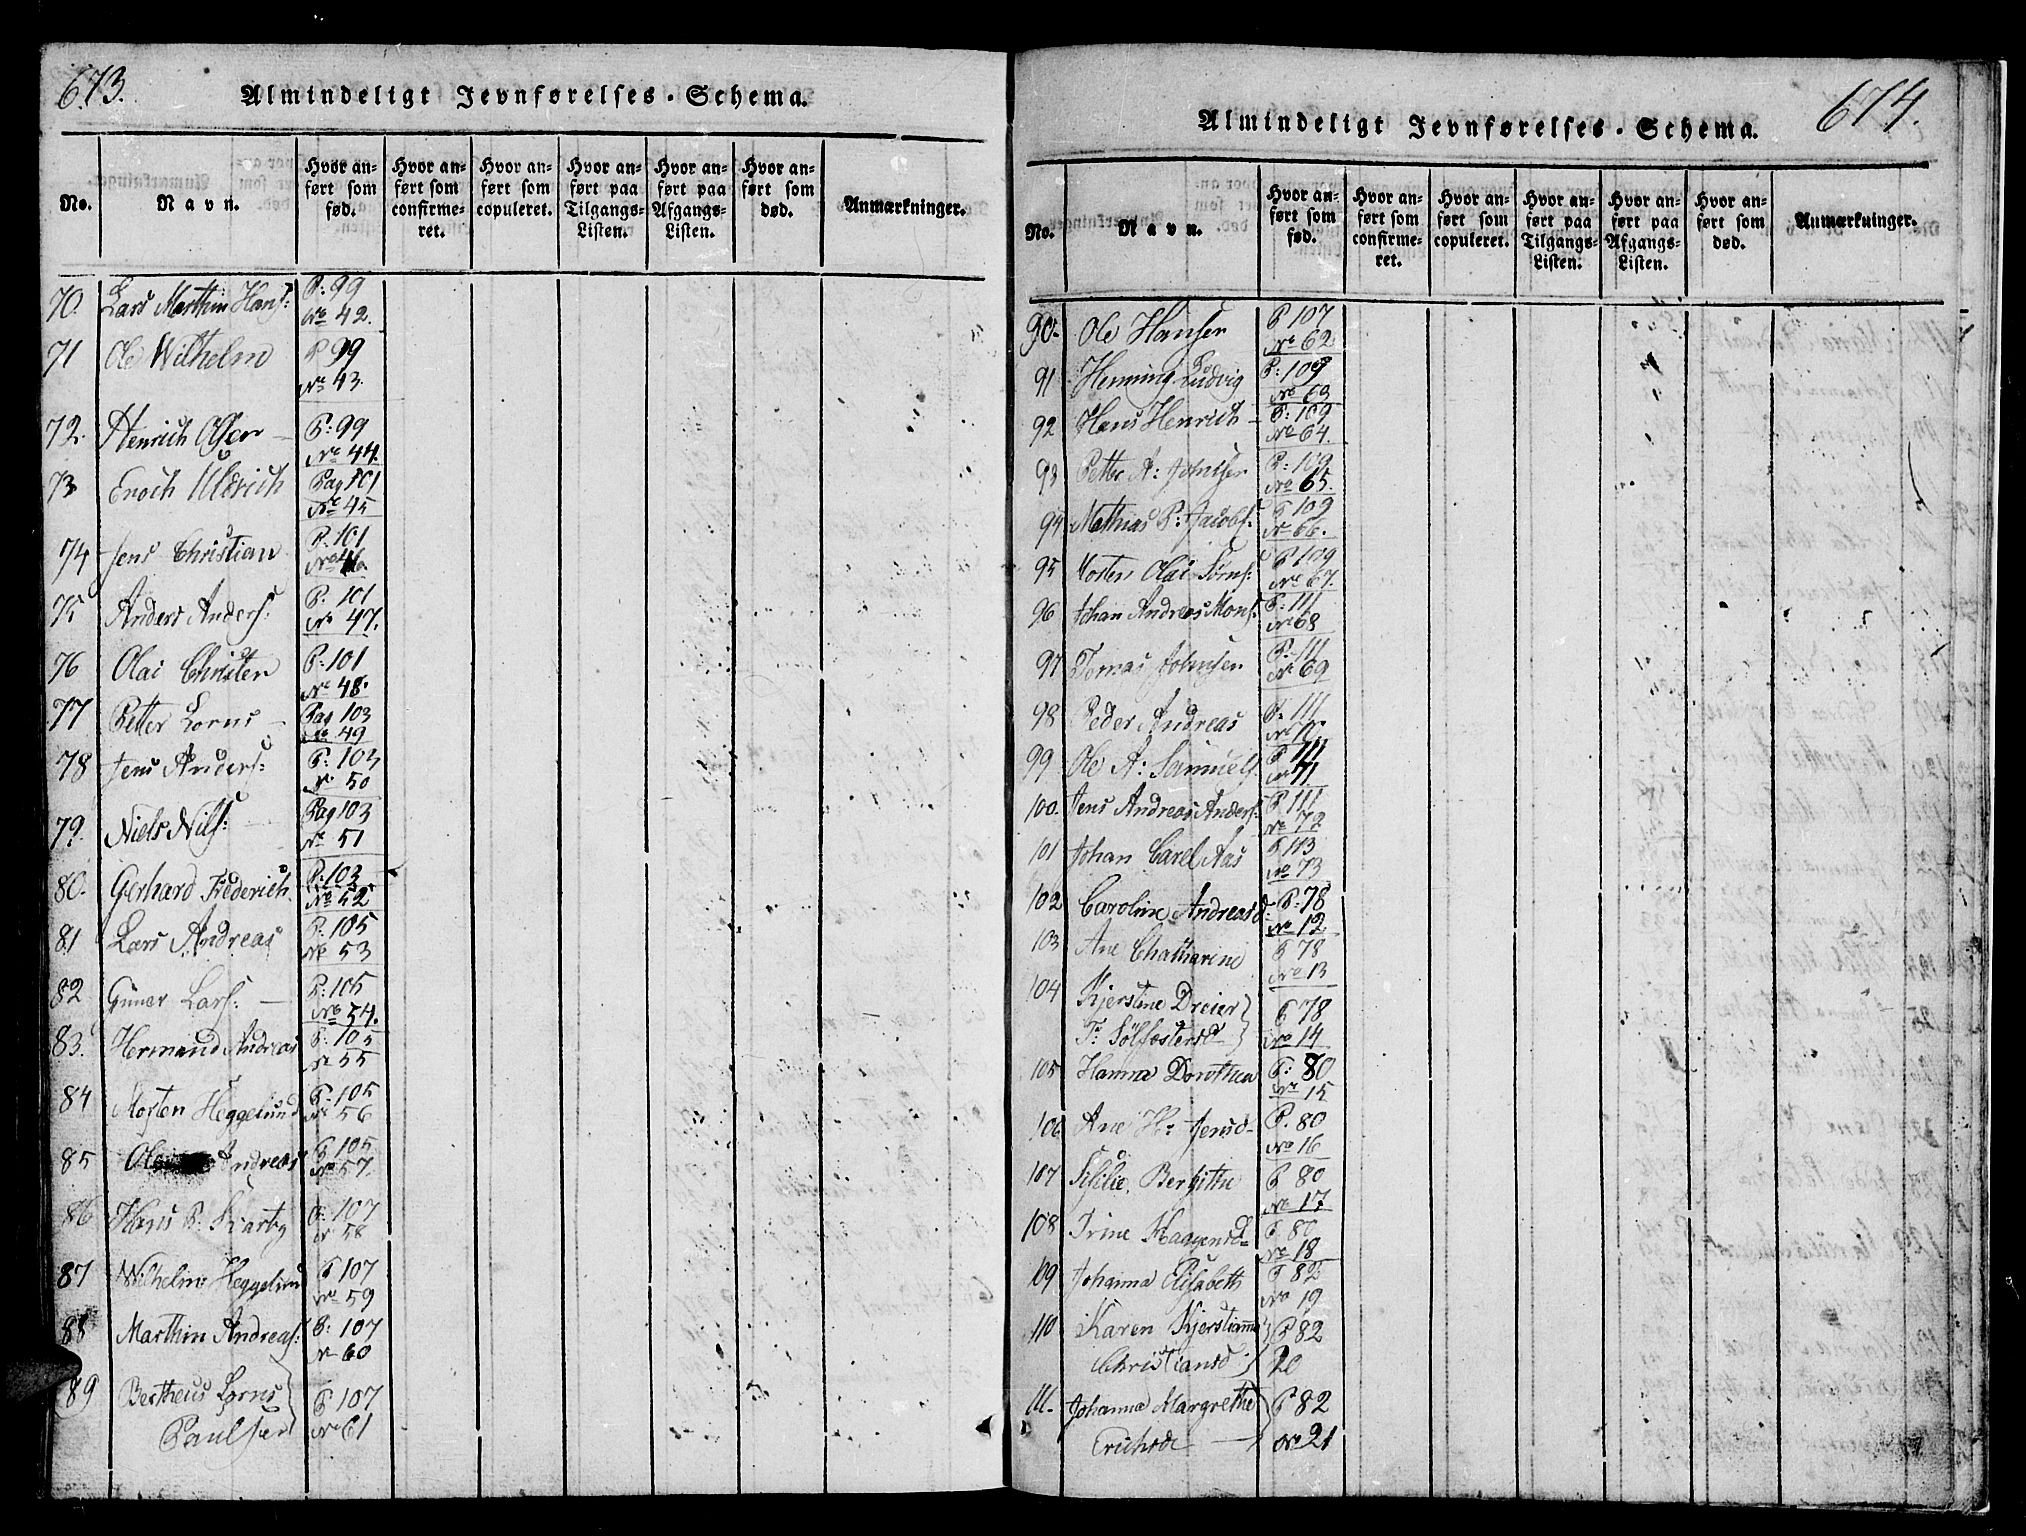 673.
Almindeligt Jevnførelses-Schema.
No.
Navn.
Hvor anført som fød.
Hvor anført som confirmeret.
Hvor anført som copuleret.
Hvor anført paa Tilgangs-Listen.
Hvor anført paa Afgangs-Listen.
Hvor anført som død.
Anmærkninger.
70. Lars Marthin Hans: P: 99
No 42.
71 Ole Wilhelm P 99
No 43.
72. Henrich Olsen P: 99
No 44.
73 Enoch Uldrich Pag 101
No 45
74 Jens Christian P. 101
No 46.
75 Anders Anders: P. 101
No 47.
76 Olai Christen P: 101
No 48.
77 Petter Lorns Pag 103
No 49
78 Jens Anders: P: 103
No 50
79. Niels Nils: Pag 103
No 51
80. Gerhard Frederich P: 103
No 52
81 Lars Andreas P: 105
No 53
82 Gunar Lars: P: 105
No 54.
83. Hermand Andreas P: 105
No 55
84 Morten Heggelund P: 105
No 56
85 Ole Andreas P 105
No 57.
86 Hans P. P: 107
No 58
87 Wilhelm Heggelund P 107
No 59
88 Marthin Andreas: P: 107
No 60
89 Bertheus Lorns P 107
Paulsen No 61
674.
Almindeligt Jevnførelses-Schema.
No.
Navn.
Hvor anført som fød.
Hvor anført som confirmeret.
Hvor anført som copuleret.
Hvor anført paa Tilgangs-Listen.
Hvor anført paa Afgangs-Listen.
Hvor anført som død.
Anmærkninger.
90. Ole Hansen P 107
No 62
91 Henning Ludvig P: 109
No 63
92 Hans Henrich P: 109
No 64.
93 Petter A: Johnsen P: 109
No 65.
94 Mathias P: Jacobs: P 109
No 66.
95 Morten Olai P 109
No 67.
96 Johan Andreas Mons: P: 111
No 68
97 Tomas Johnsen P: 111
No 69
98 Peder Andreas P: 111
No 70
99 Ole A: Samuels P 111
No 71.
100. Jens Andreas Anders: P 111
No 72
101 Johan Carel Aas P 113
No 73
102 Caroline Andreasd: P: 78
No 12
103 Ane Chatharine P 78
No 13
104 Kjerstine Dreier P 78
T: No 14
105 Hanna Dorothea P: 80
No 15
106 Ane H: Jensd P. 80
No 16
107 Bergitha P 80
No 17
108 Trine Haagensd P 80
No 18
109 Johanna Elisabeth P 82
No 19
110 Karen Kjerstianna P 82
Christiansd 20
111. Johanna Margrethe P 82
Erichsd No 21